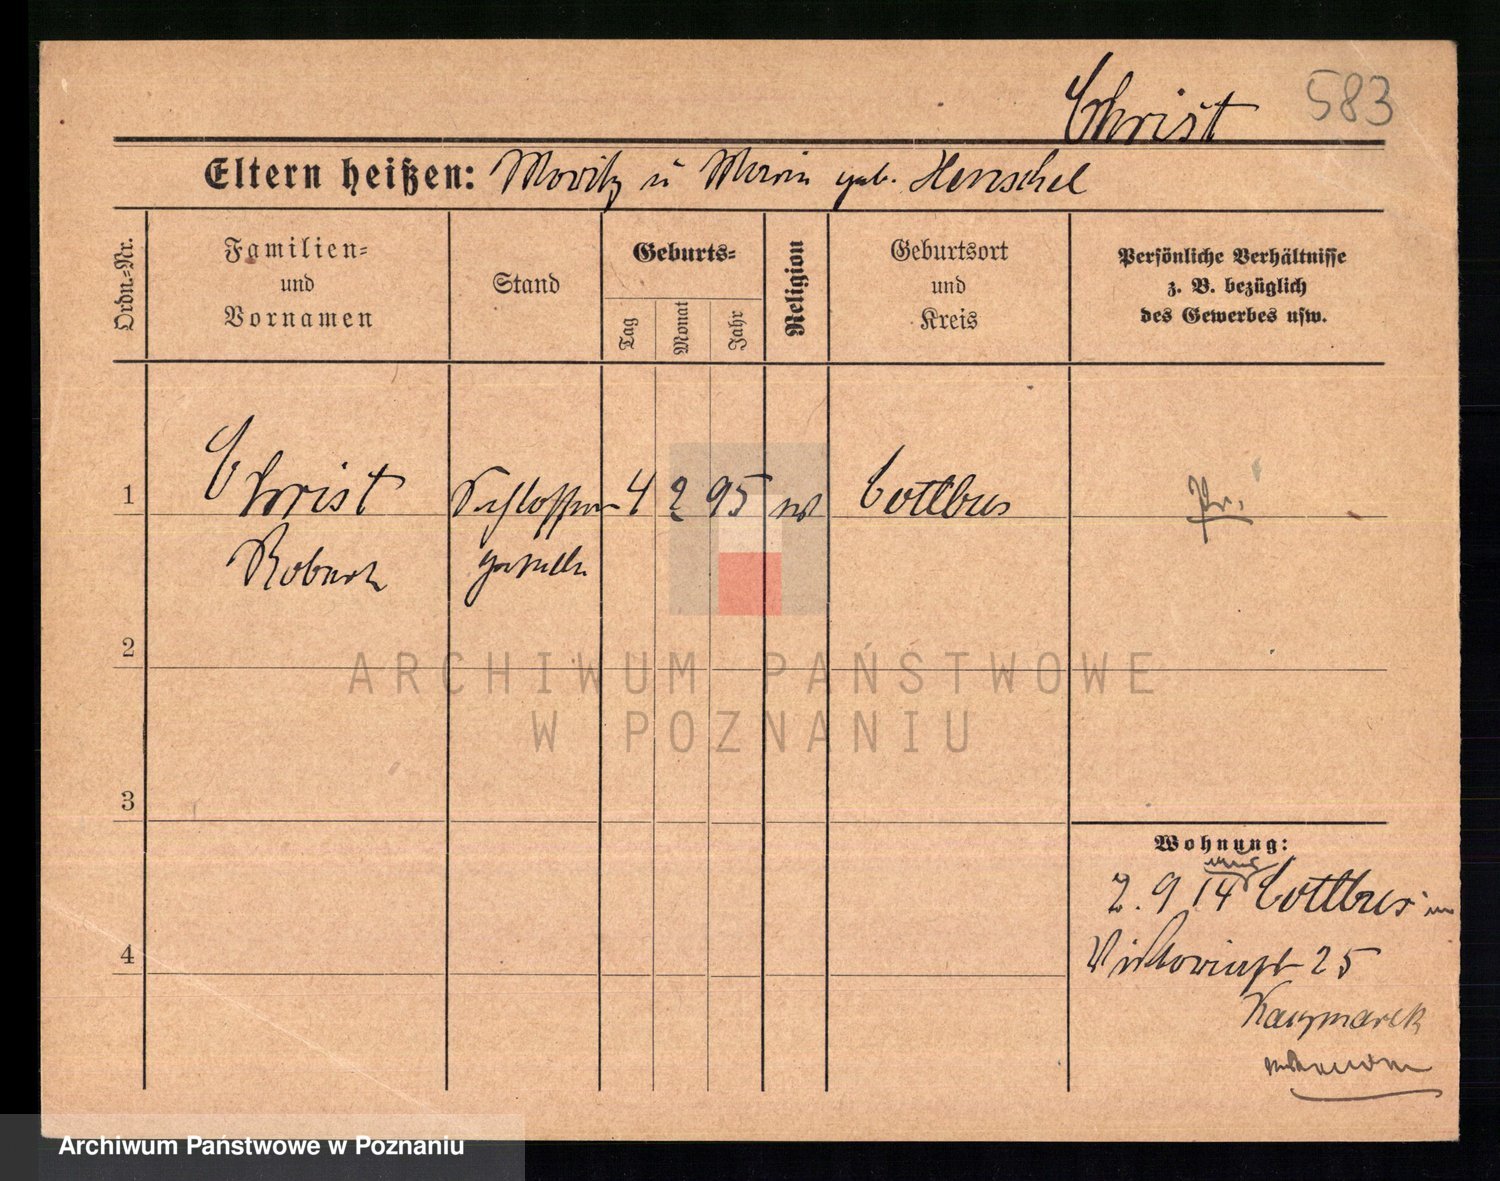 Christ 583
Eltern heißen: Moritz u Marie geb. Henschel
Ordn.-Nr.
Familien-
und
Vornamen
Stand
Geburts-
Tag
Monat
Jahr
Religion
Geburtsort
und
Kreis
Persönliche Verhältnisse
z. B. bezüglich
des Gewerbes usw.
1 Christ Schlosser 4 2 95 Cottbus Pr.
Robert geselle
2
ARCHIWUM PAŃSTWOWE
W POZNANIU
3
Wohnung:
2. 9 14 Cottbus
4
Viktoriastr 25
Kaczmarek
Archiwum Państwowe w Poznaniu